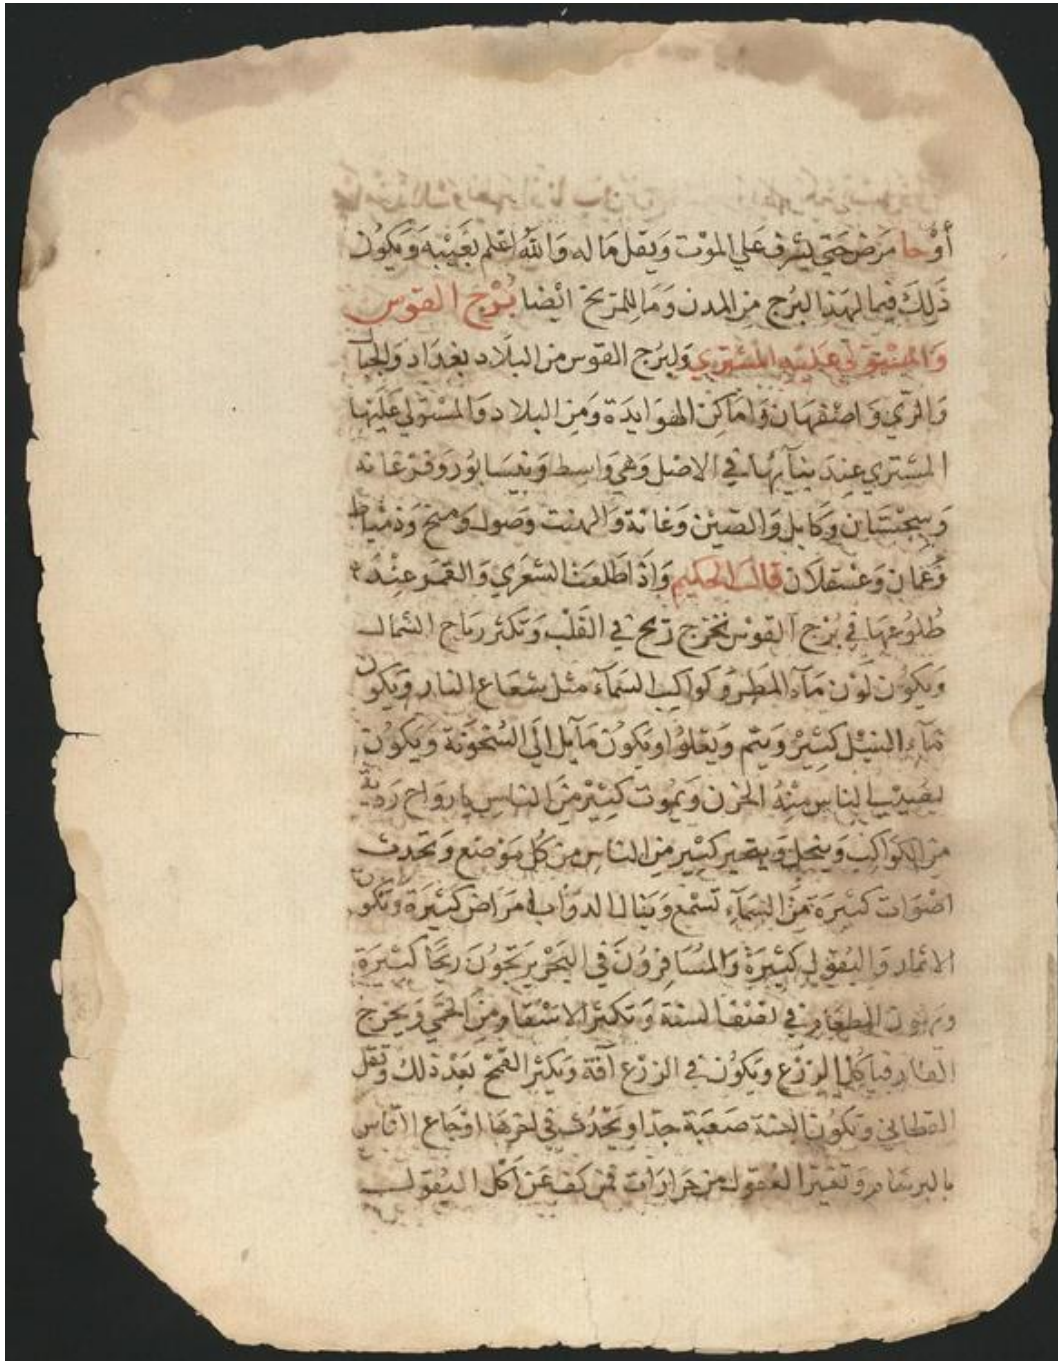 أوجا مرض حتي يشرف علي الموت ويقل ماله والله اعلم بغيبه ويكون
ذلك فيما لهذا البرج من المدن وما للمريخ ايضا برج القوس
والمستولي عليه المشتري ولبرج القوس من البلاد بغداد والجبال
والري واصفهان واماكن ومن البلاد والمستولي عليها
المشتري عند بنآيها في الاصل وهي واسط ونيسابور وفرغانه
وسجستان وكابل والصين وغانة وصول ومنبج ودمياط
وعمان وعسقلان قال الحكيم واذا طلعت الشعري والقمر عند
طلوعها في برج القوس تخرج ريح في القلب وتكثر رياح الشمال
ويكون لون مآء المطر وكواكب السمآء مثل شعاع النار ويكون
مآء النيل كثير ويتم ويعلوا ويكون مآيل الي السخونة ويكون
يصيب الناس منه الحزن ويموت كثير من الناس بارواح ردية
من الكواكب وينحل ويتحير كثير من الناس من كل موضع وتحدث
اصوات كثيرة من السمآء تسمع وينال الدواب امراض كثيرة وتكون
الاثمار والبقول كثيرة والمسافرون في البحر يرتجون ريحا كثيرة
الطعام في نصف السنة وتكثر الاسقام من الحمي ويخرج
الفار فياكل الزرع ويكون في الزرع آفة ويكثر القمح بعد ذلك وتقل
القطاني وتكون السنة صعبة جدا ويحدث في اخرها اوجاع الناس
بالبرسام وتغير العقول من حرارات فمن كف عن اكل البقول